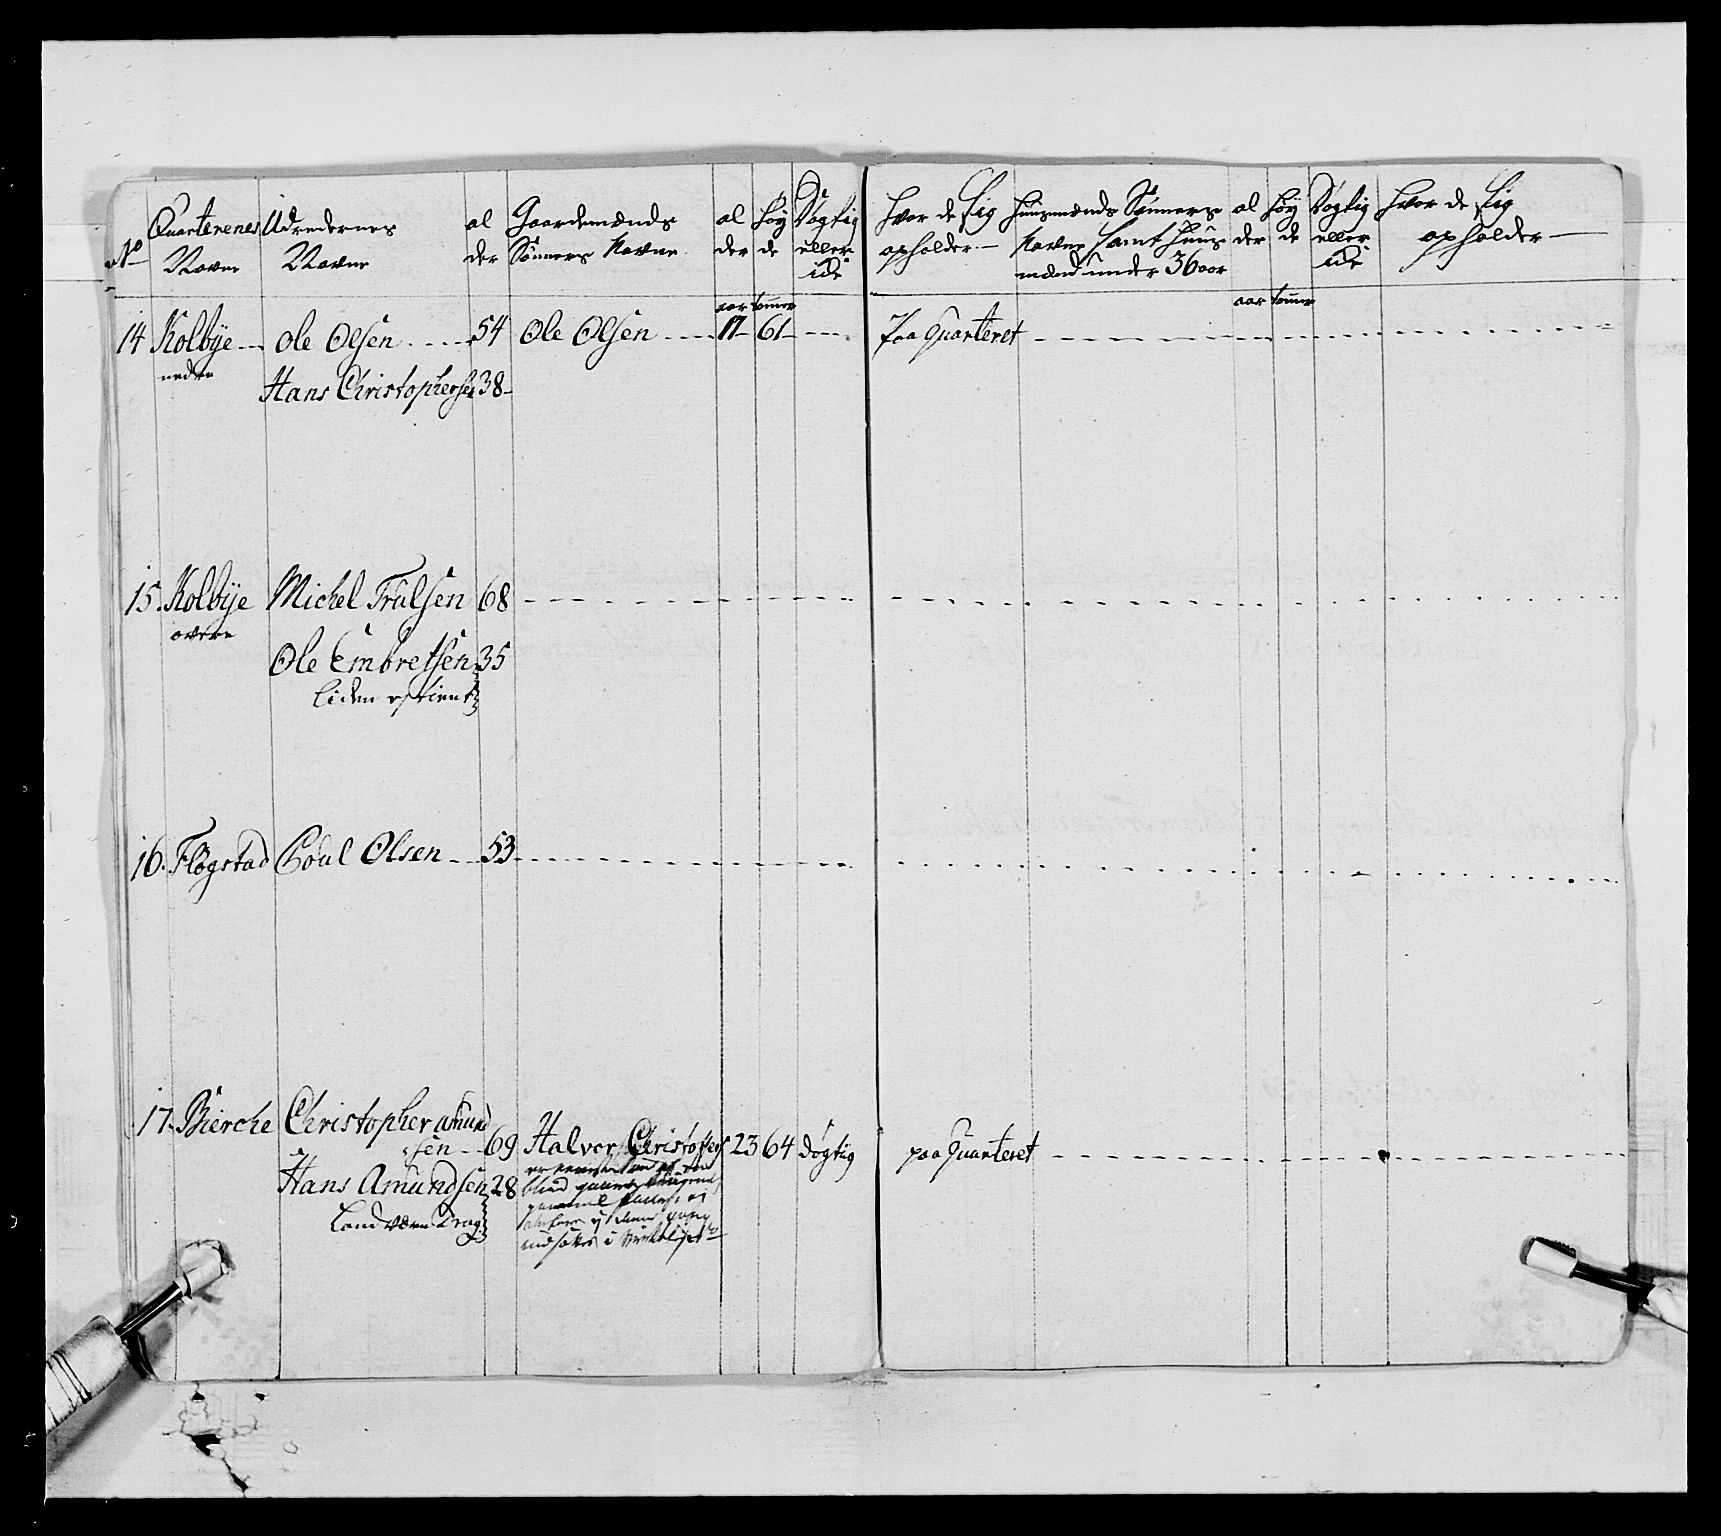 No Quarterenes Navne Udredernes Navne al der Gaardemænds Sønners Navne al der Høy de Døgtig eller ide Hvor de sig opholder Huusmænds Sønners Navne samt Huus mænd under 36 aar al der Høy de Døgtig eller ide Hvor de sig opholder
aar tommer aar tommer
14 Kolbye Ole Olsen 54 Ole Olsen 17 61 Paa Quarteret
nedre
Hans Christophersen 38
15. Kolbye Michel Trulsen 68
overe
Ole Embretsen 35
liden
16. Flögstad Poul Olsen 53
17. Bierche Christopher Amund
sen 69 Halvor Christoffers 23 64 Døgtig paa Quarteret
Hans Amundsen 28
Landværn Drag